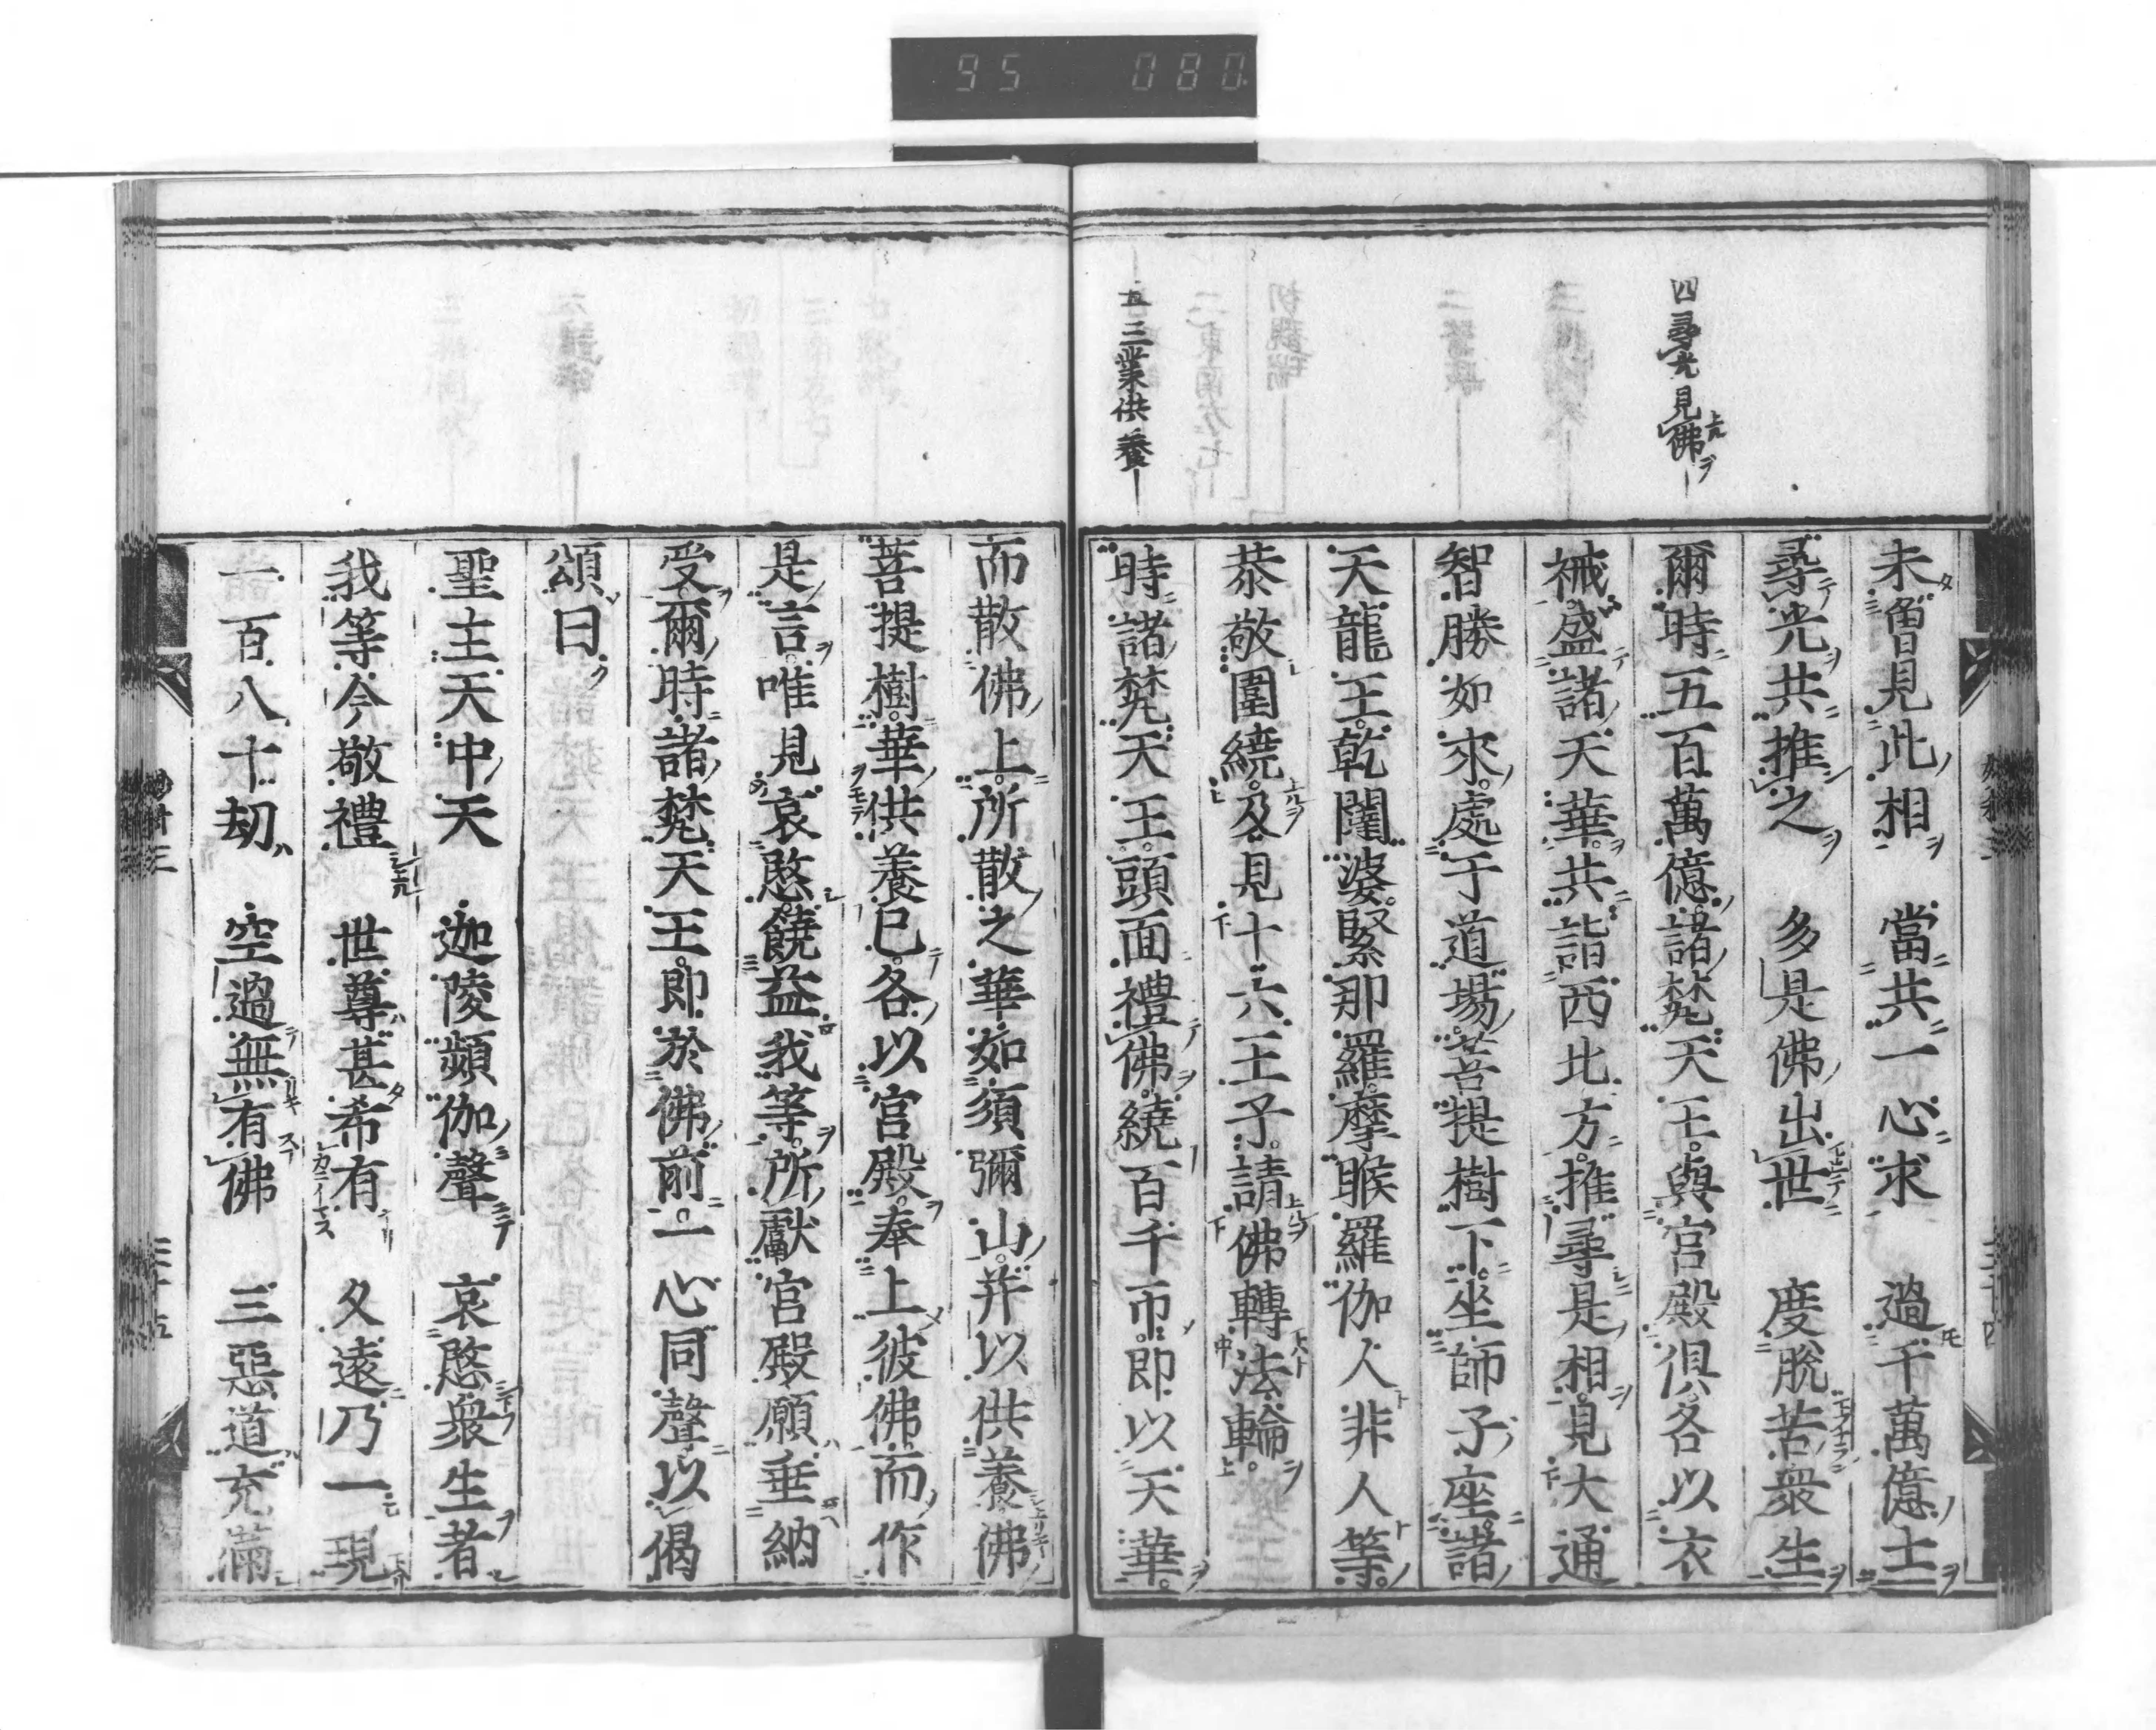 95 080
四尋光見佛
五三業供養
未曾見此相　當共一心求　過千萬億土
尋光共推之　多是佛出世　度脫苦衆生
爾時五百萬億諸梵天王與宮殿俱各以衣
裓盛諸天華共詣西北方推尋是相見大通
智勝如來處于道場菩提樹下坐師子座諸
天龍王乾闥婆緊那羅摩睺羅伽人非人等
恭敬圍繞及見十六王子請佛轉法輪
時諸梵天王頭面禮佛繞百千帀即以天華
而散佛上所散之華如須彌山并以供養佛
菩提樹華供養已各以宮殿奉上彼佛而作
是言唯見哀愍饒益我等所獻宮殿願垂納
受爾時諸梵天王即於佛前一心同聲以偈
頌曰
聖主天中天　迦陵頻伽聲　哀愍衆生者
我等今敬禮　世尊甚希有　久遠乃一現
一百八十劫　空過無有佛　三惡道充滿